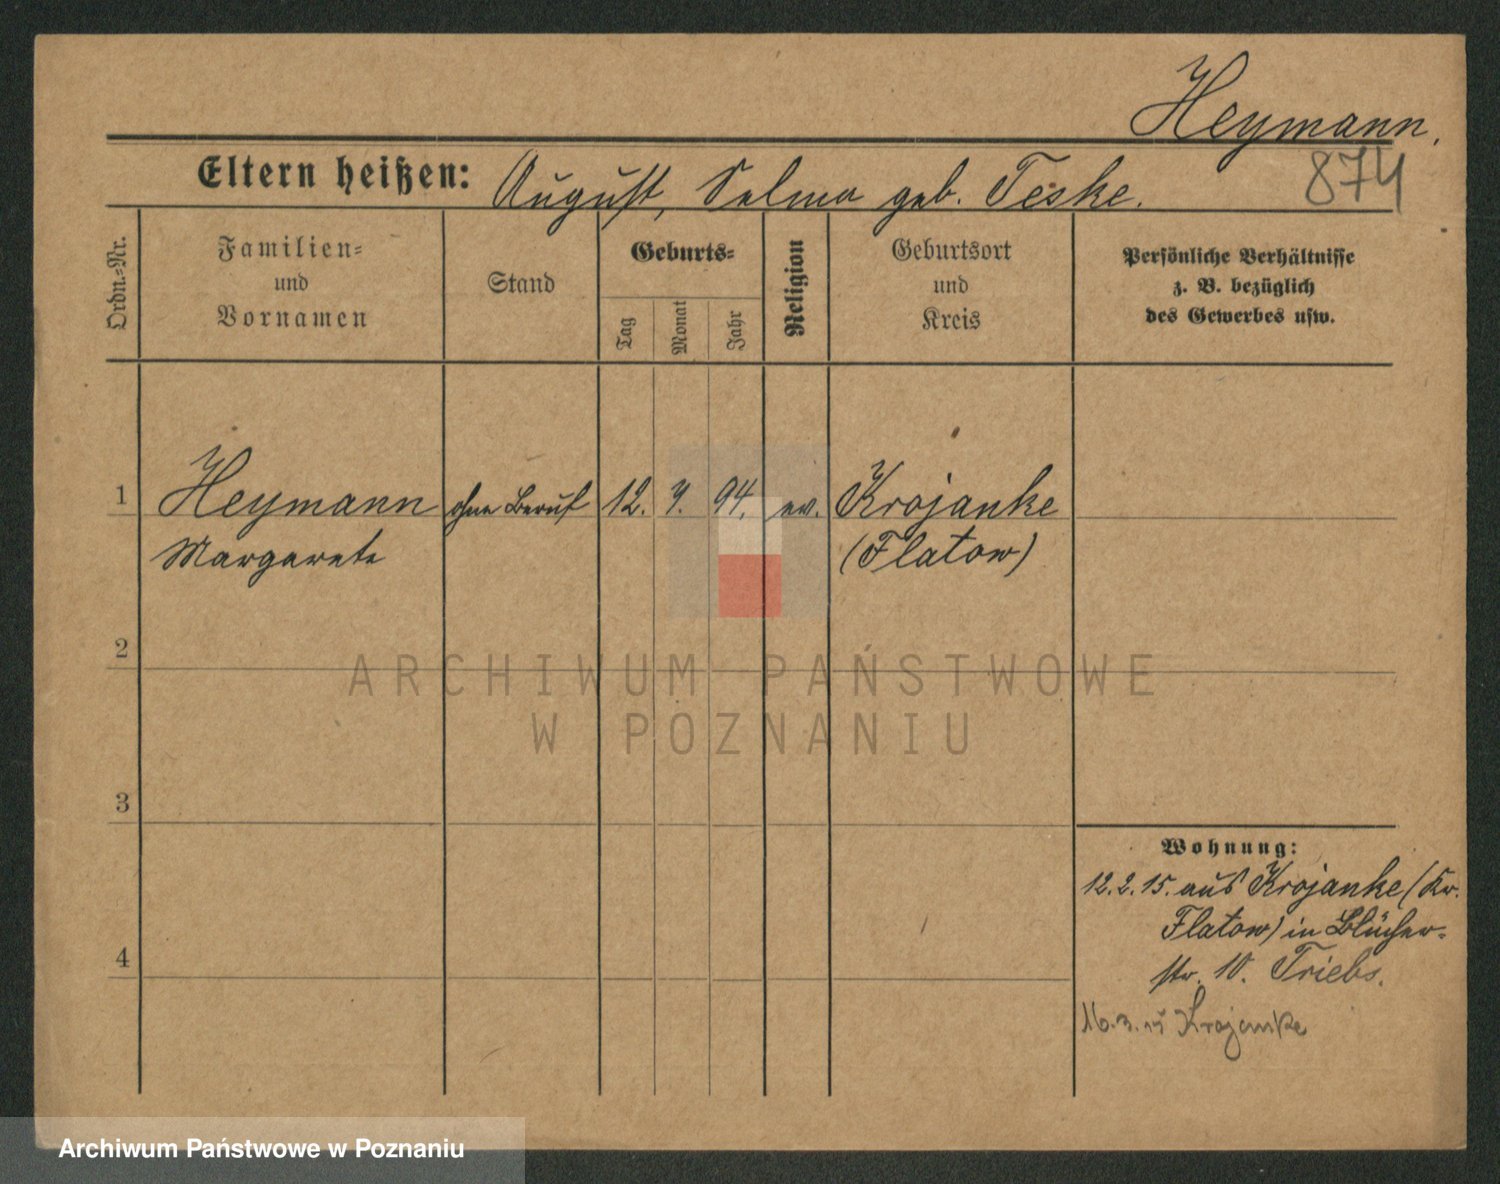 Heymann.
874
Eltern heißen: August, Selma geb. Teske.
Ordn.=Nr.
Familien=
und
Vornamen
Stand
Geburts=
Tag
Monat
Jahr
Religion
Geburtsort
und
Kreis
Persönliche Verhältnisse
z. B. bezüglich
des Gewerbes usw.
1 Heymann ohne Beruf 12. 7. 94. ev. Krojanke
Margarete (Flatow)
2
ARCHIWUM PAŃSTWOWE
W POZNANIU
3
Wohnung:
12.2.15. aus Krojanke (Kr.
Flatow) in Blücher=
4
str. 10. Triebs.
16.3.15 Krojanke
Archiwum Państwowe w Poznaniu